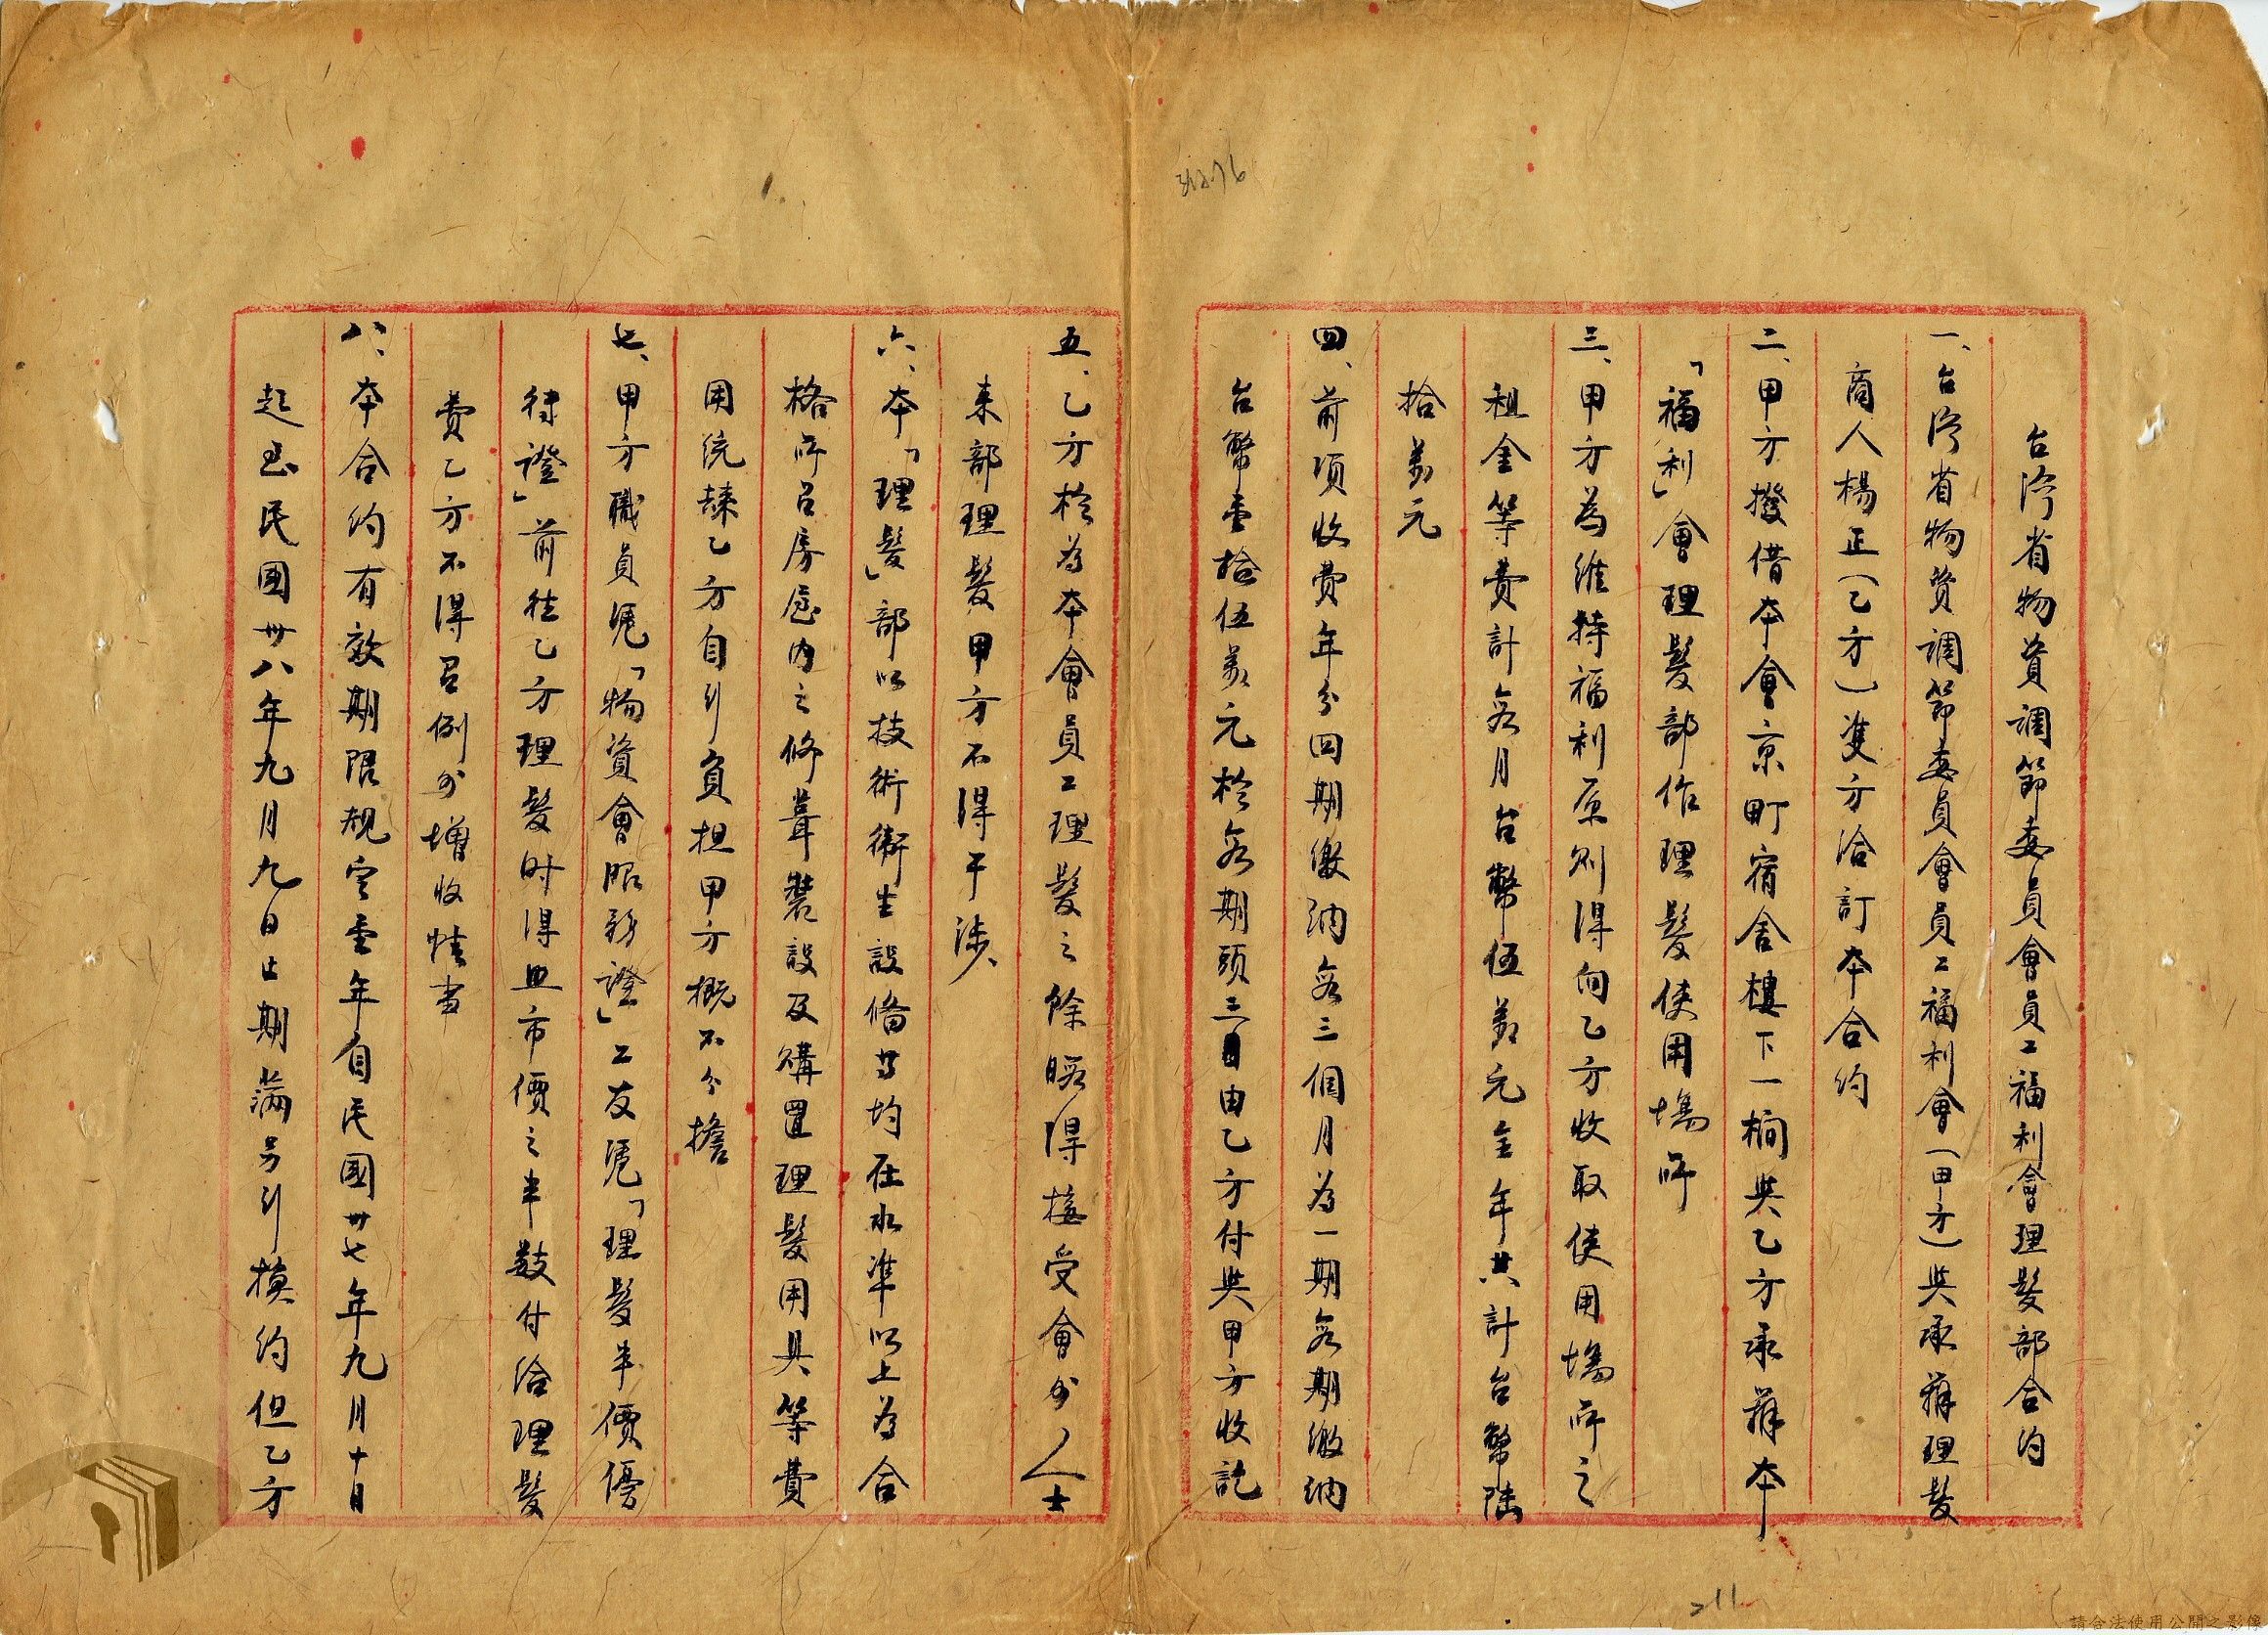 台灣省物資調節委員會員工福利會理髮部合約
一、台灣省物資調節委員會員工福利會(甲方)與承辦理髮
商人楊正(乙方)雙方洽訂本合約
二、甲方撥借本會京町宿舍樓下一棟與乙方承辦本
「福利」會理髮部作理髮使用場所
三、甲方為維持福利原則得向乙方收取使用場所之
租金等費計每月台幣伍萬元全年共計台幣陸
拾萬元
四、前項收費年分四期繳納每三個月為一期每期繳納
台幣壹拾伍萬元於每期頭三日由乙方付與甲方收訖
五、乙方於為本會員工理髮之餘暇得接受會外人士
來部理髮甲方不得干涉
六、本「理髮」部以技術衛生設備等均在水準以上為合
格所召房屋內之修葺裝設及購置理髮用具等費
用統歸乙方自行負担甲方概不分擔
七、甲方職員憑「物資會服務證」工友憑「理髮半價優
待證」前往乙方理髮時得照市價之半數付給理髮
費乙方不得召例外增收情事
八、本合約有效期限規定壹年自民國卅七年九月十日
起至民國卅八年九月九日止期滿另行換約但乙方
211
請合法使用公開之影像